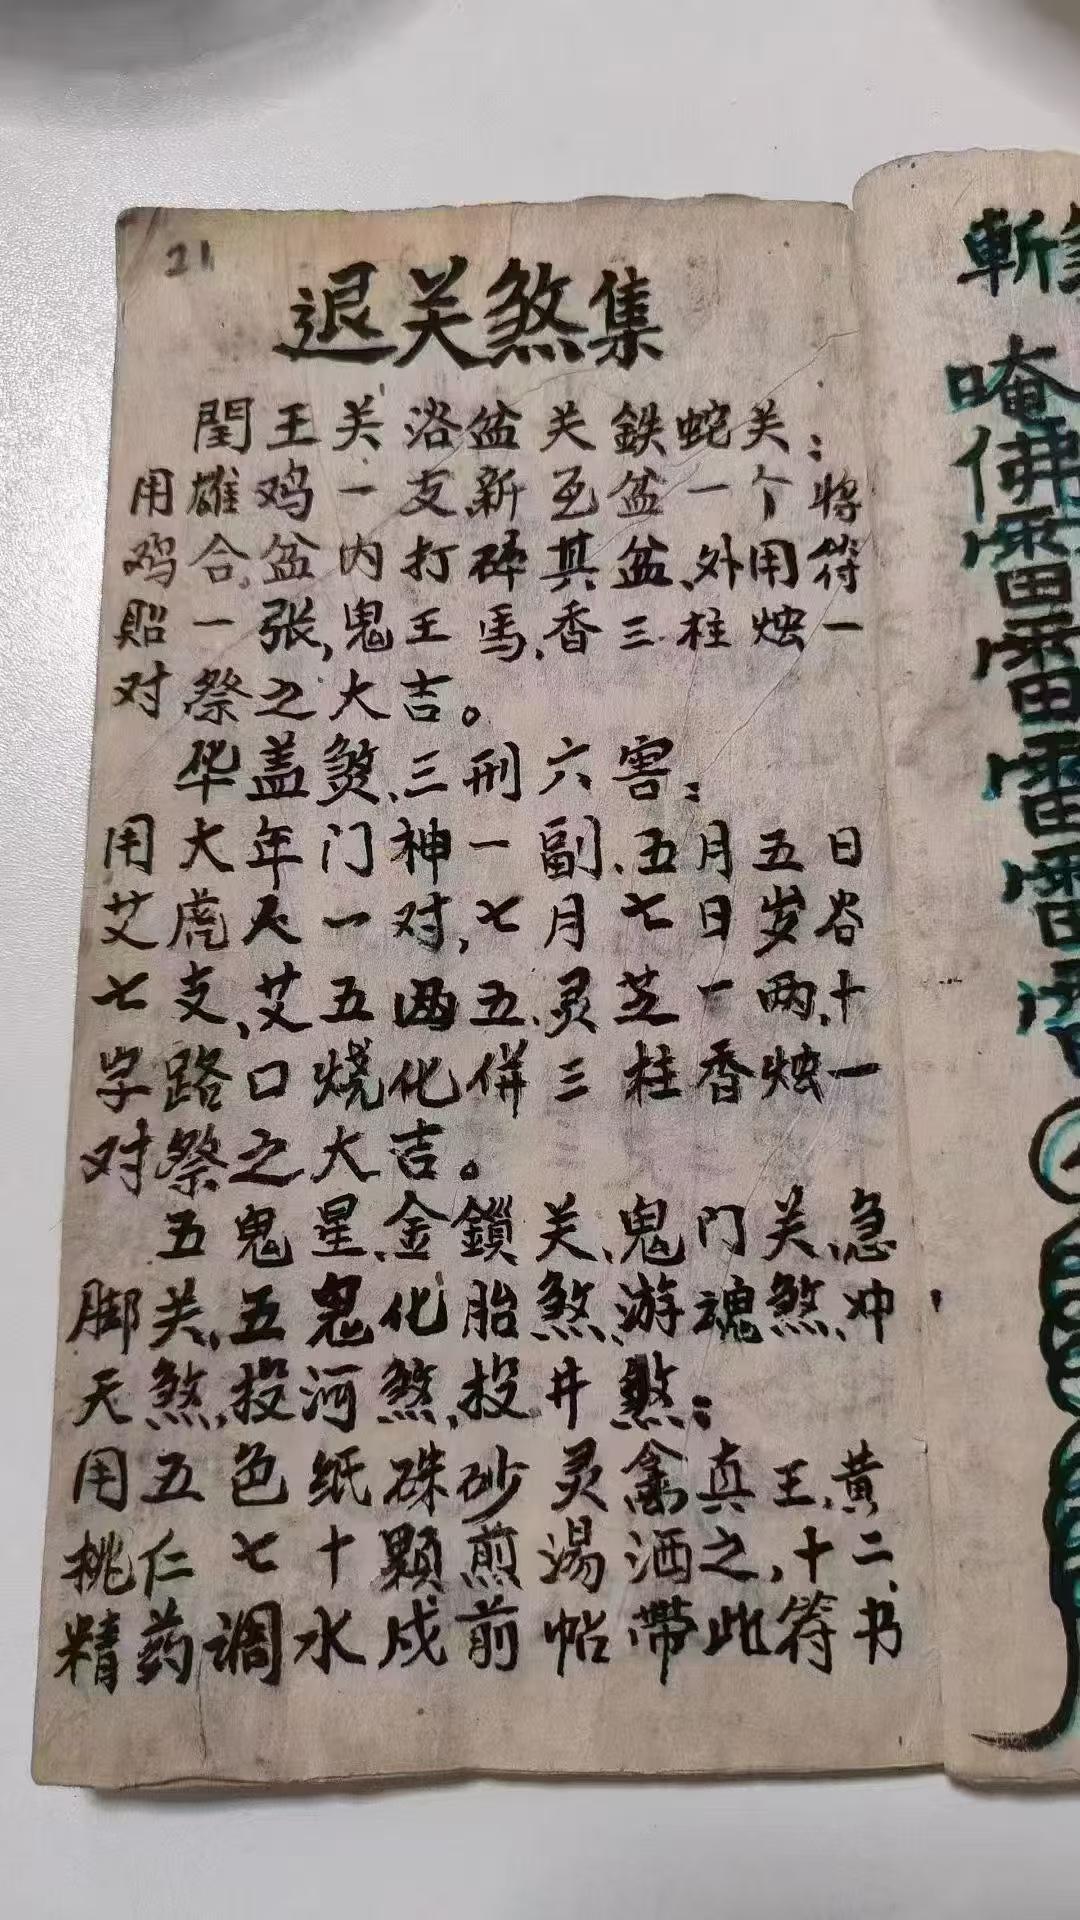 21
退关煞集
閏王关洛盆关鉄蛇关：
用雄鸡一支新瓦盆一个将
鸡合盆内打碎其盆外用符
贴一张,鬼王马,香三柱烛一
对祭之大吉。
华盖煞、三刑六害：
用大年门神一副、五月五日
艾虎灭一对,七月七日岁谷
七支,艾五两五、灵芝一两,十
字路口烧化併三柱香烛一
对祭之大吉。
五鬼星、金鎖关、鬼门关、急
脚关、五鬼化胎煞、游魂煞、冲
天煞,投河煞,投井煞：
用五色纸硃砂灵禽真王,黄
桃仁七十顆煎湯洒之,十二
精药调水戍前帖帶此符书
斬
唵
佛
雷
雷
雷
雷